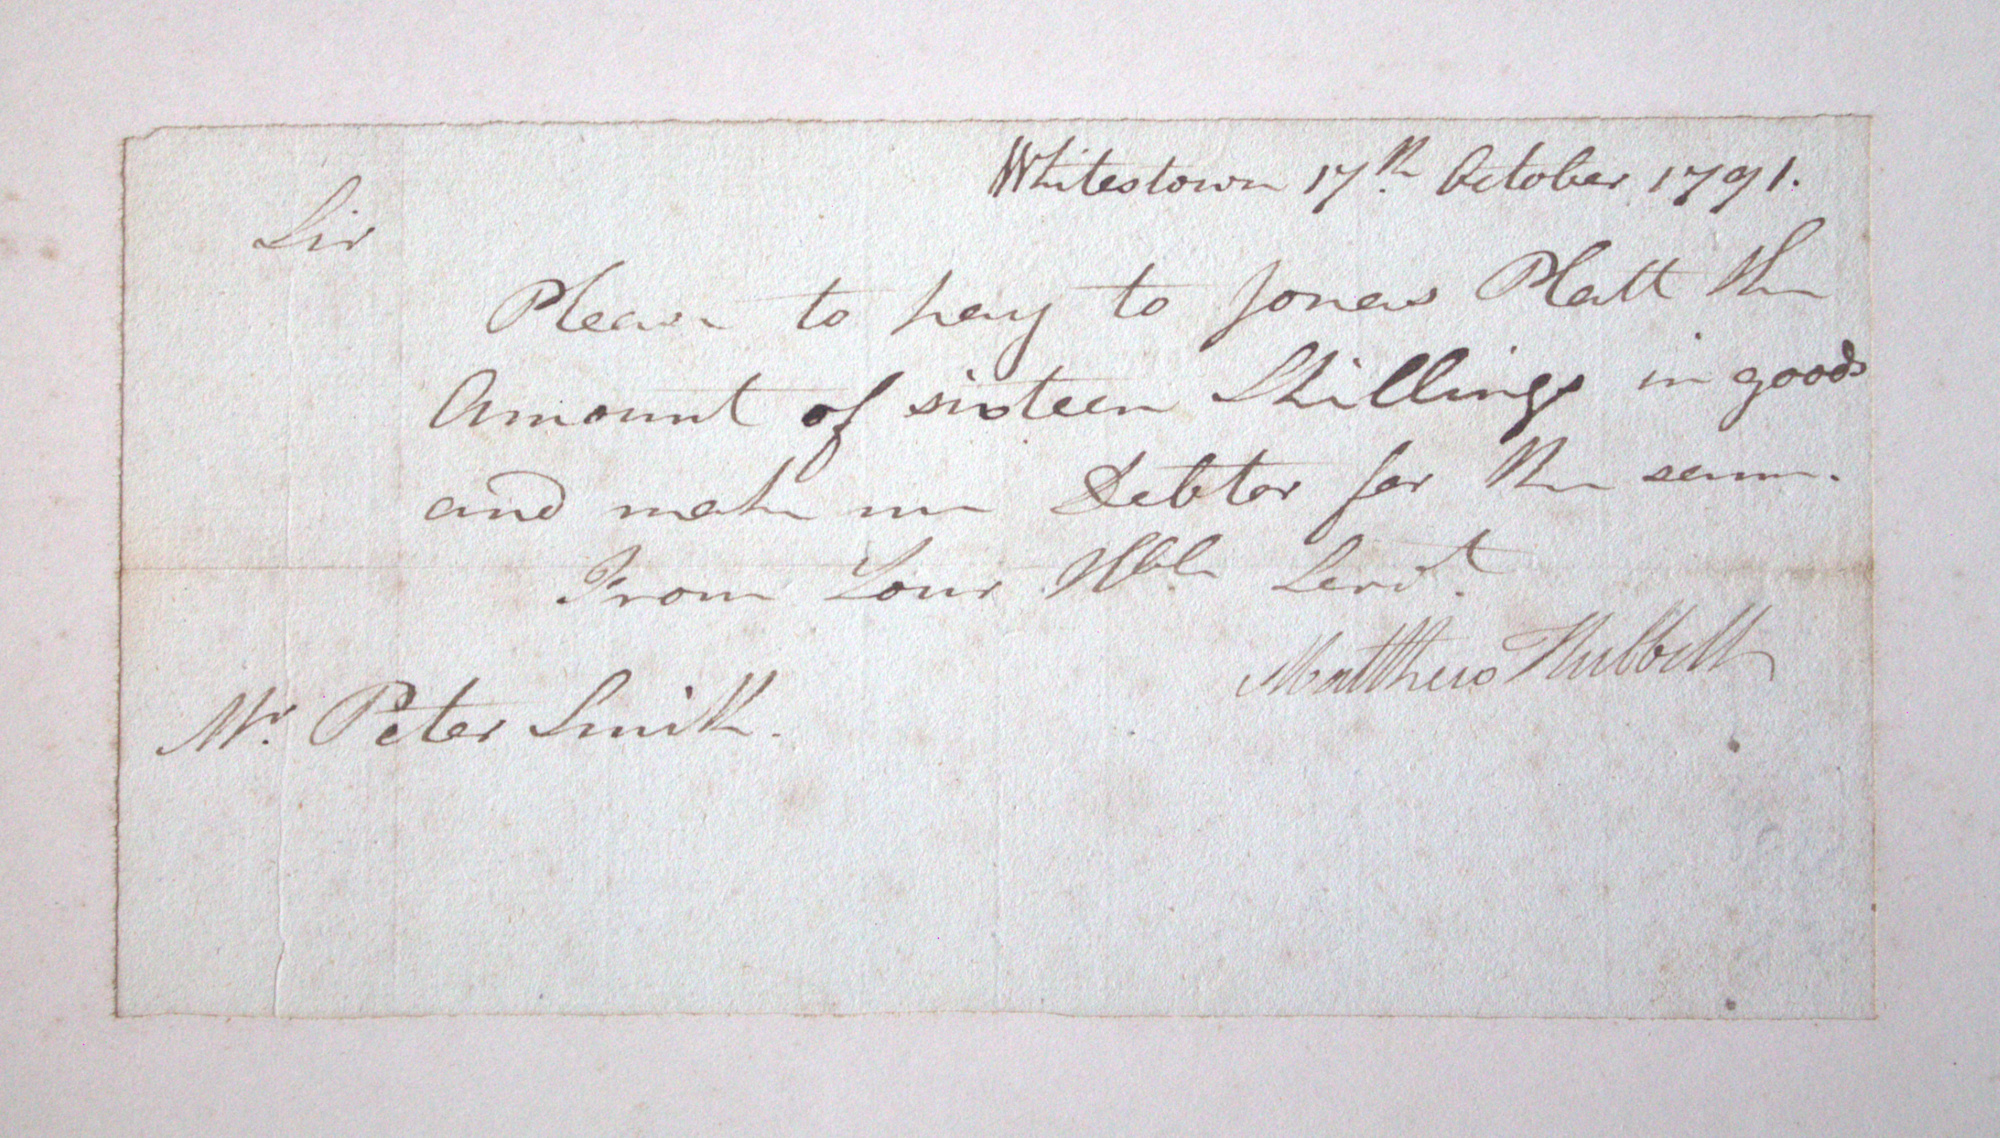 Whitestown 17th October 1791.
Sir
Please to pay to Jonas Platt the
Amount of sixteen Shillings in goods
and make me Debtor for the same.
From Your Hble Servt.
Matthew Hubbell
Mr. Peter Smith.